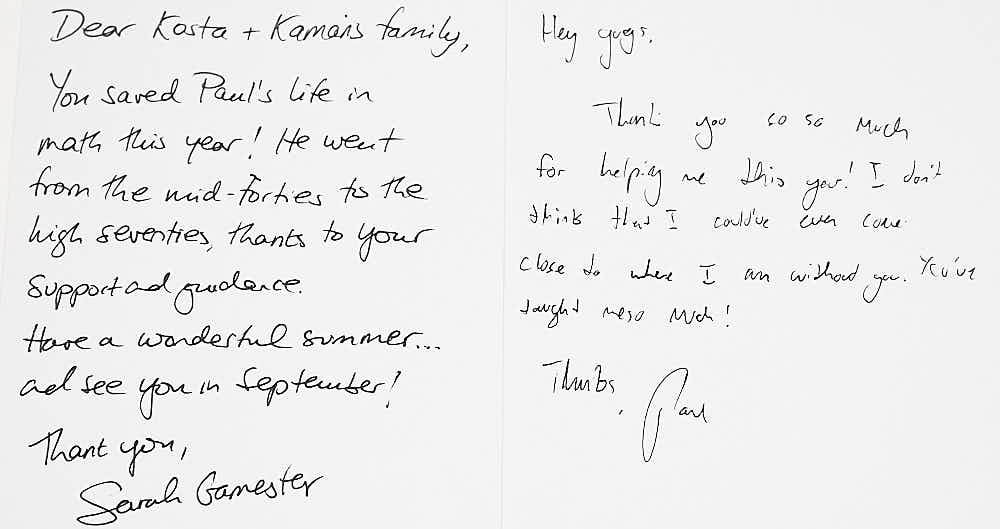 Dear Kosta + Kamān's family,
You saved Paul's life in
math this year! He went
from the mid-forties to the
high seventies, thanks to your
support and guidance.
Have a wonderful summer...
and see you in September!
Thank you,
Sarah Gamester
Hey guys,
Thank you so so much
for helping me this year! I don't
think that I could've even come
close to where I am without you. You've
taught me so much!
Thanks,
Paul